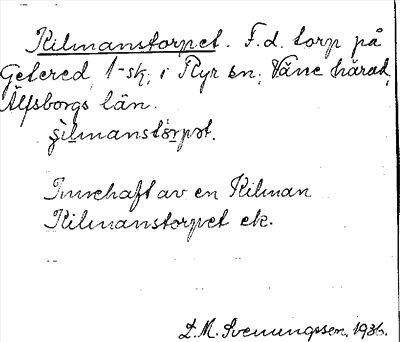 Kilmanstorpet. F.d. torp på
Getered, 1-sk, i Ryr sn, Väne härad,
Älfsborgs län.
Innehaft av en Kilman
Kilmanstorpet ek.
D.M. Svenungsson. 1936.